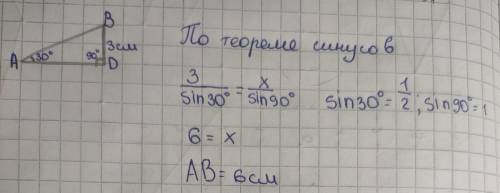 B
3см
A 30° 90° D
По теореме синусов
3/sin30° = x/sin90° sin30° = 1/2; sin90° = 1
6 = x
AB = 6см